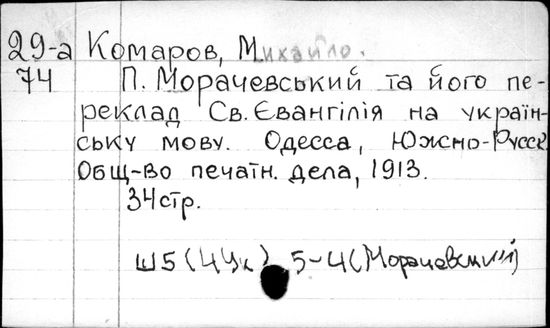 29-а Комаров, Михайло.
74 П. Морачевський та його пе-
реклад Св. Євангілія на україн-
ську мову. Одесса, Южно-Русск.
Общ-во печатн. дела, 1913.
34 стр.
Ш5(4Ук) 5-4(Морачевский)